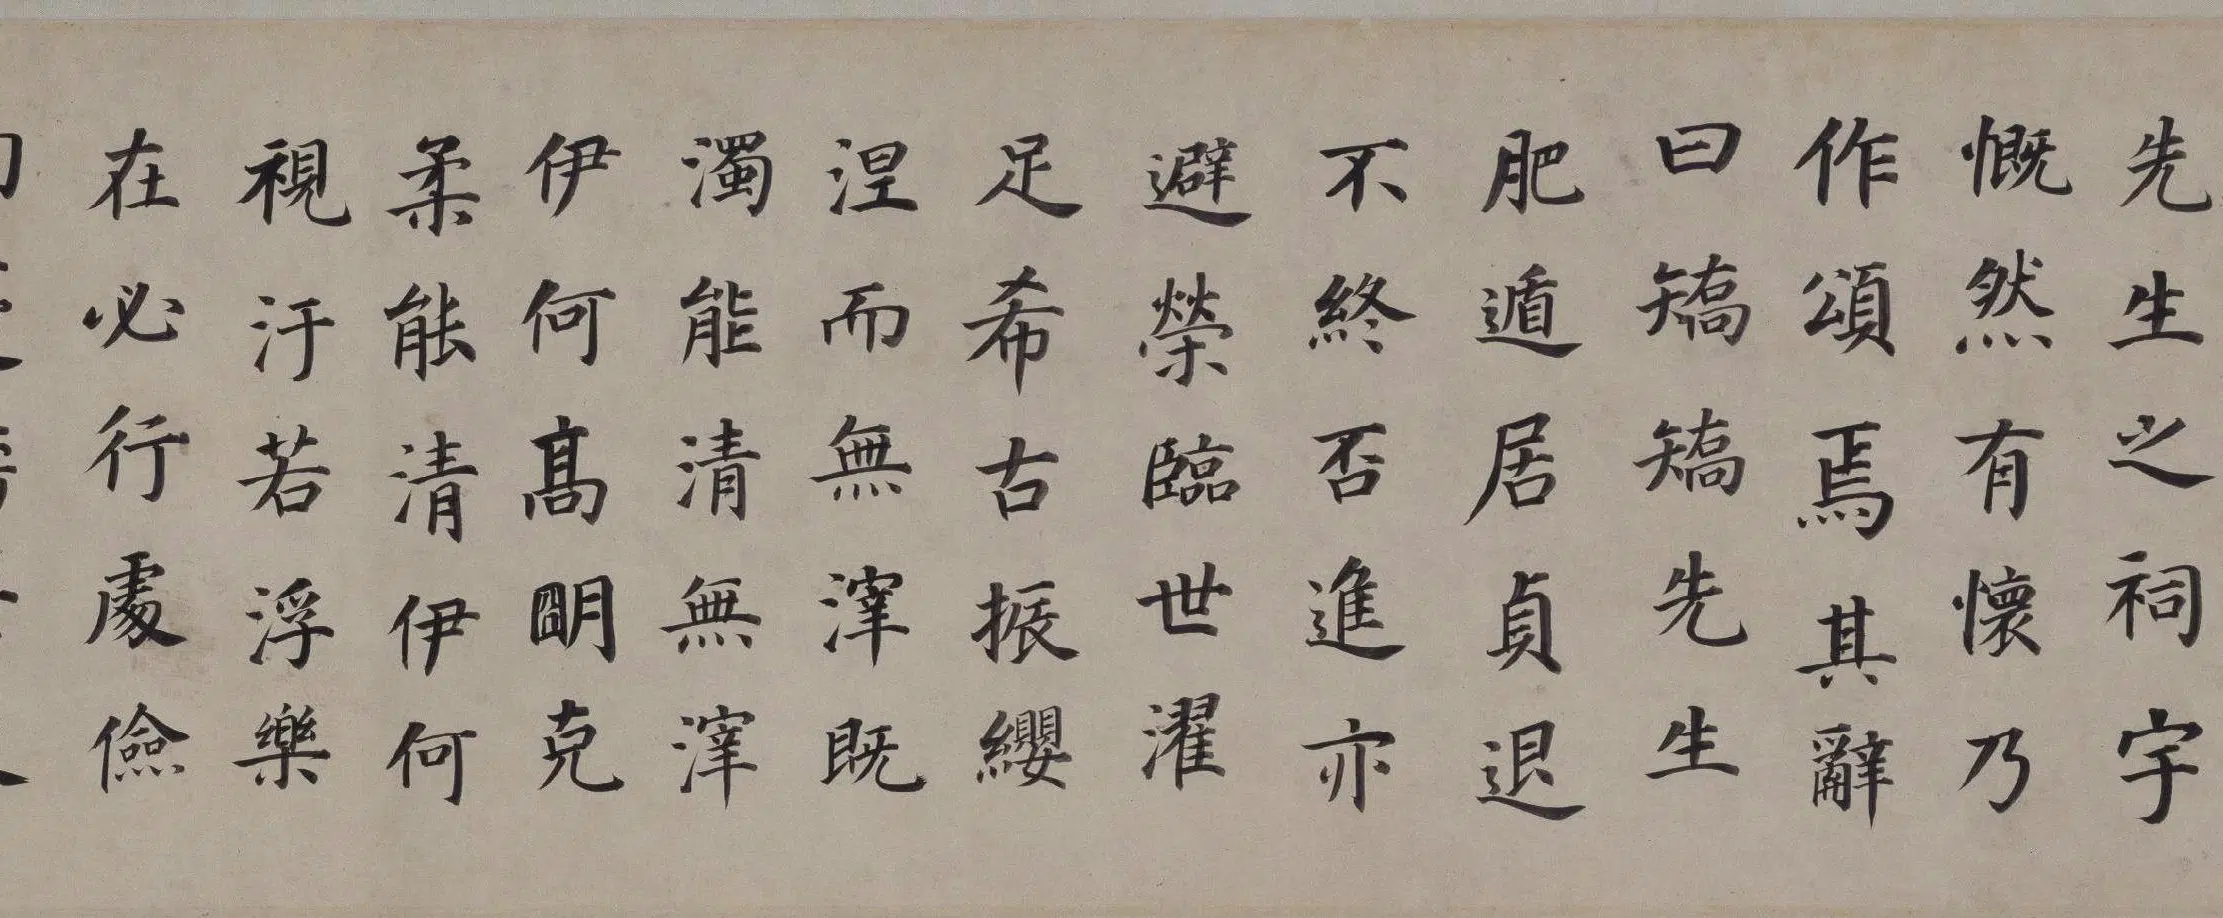 先生之祠宇
慨然有懷乃
作頌焉其辭
曰矯矯先生
肥遁居貞退
不終否進亦
避榮臨世濯
足希古振纓
涅而無滓既
濁能清無滓
伊何高明克
柔能清伊何
視汙若浮樂
在必行處儉